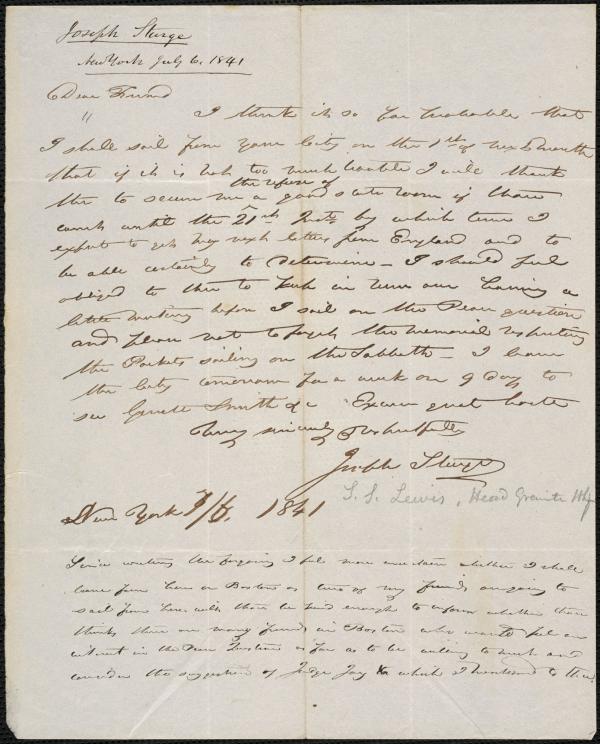 Joseph Sturge
New York July 6. 1841
Dear Friend
I think it so far probable that
I shall sail from your City on the 1st of next month
that if it is not too much trouble I will thank
the refusal of
thee to secure me a good state room if thou
canst until the 21st Inst. by which time I
expect to get my next letters from England and to
be able certainly to determine – I should feel
obliged to thee to keep in view our having a
little meeting before I sail on the Peace question
and please not to forget the memorial respecting
the Packets sailing on the Sabbath – I leave
the City tomorrow for a week or 9 days to
see Gerrit Smith &c Excuse great haste
Very sincerely & respectfully
Joseph Sturge
S. S. Lewis, Head Granite Whf
New York 7/6. 1841
Since writing the foregoing I feel more uncertain whether I shall
leave from here or Boston as two of my friends are going to
sail from here, wilt thou be kind enough to inform whether thou
thinks there are many friends in Boston who would feel an
interest in the Peace Question so far as to be willing to meet and
consider the suggestion of Judge Jay to which I mentioned to thee.